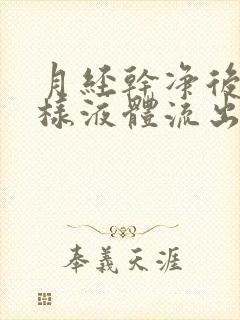 月經幹凈後
樣液體流出
奉義天涯